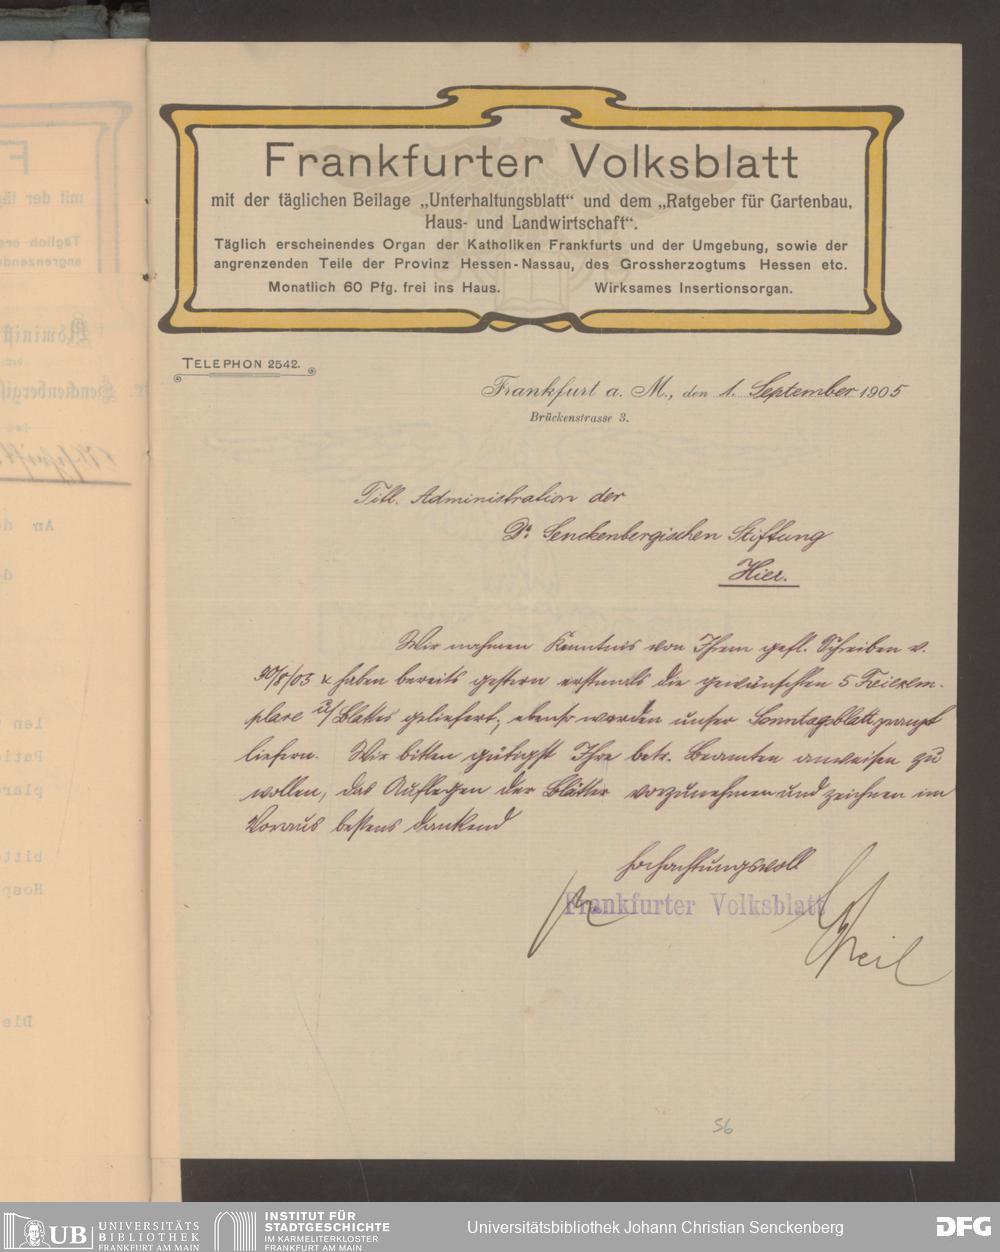 Frankfurter Volksblatt
mit der täglichen Beilage „Unterhaltungsblatt" und dem „Ratgeber für Gartenbau,
Haus- und Landwirtschaft".
Täglich erscheinendes Organ der Katholiken Frankfurts und der Umgebung, sowie der
angrenzenden Teile der Provinz Hessen-Nassau, des Grossherzogtums Hessen etc.
Monatlich 60 Pfg. frei ins Haus. Wirksames Insertionsorgan.
TELEPHON 2542.
Frankfurt a. M., den 1. September 1905
Brückenstrasse 3.
Titl. Administration der
Dr. Senckenbergischen Stiftung
Hier.
Wir nahmen Kenntnis von Ihrem gefl. Schreiben v.
30/8/05 & haben bereits gestern erstmals die gewünschten 5 Freiexem-
plare u/Blattes geliefert; ebenso werden unser Sonntagsblatt prompt
liefern. Wir bitten gütigst Ihre betr. Beamten anweisen zu
wollen, das Auflegen der Blätter vorzunehmen und zeichnen im
Voraus bestens dankend
Hochachtungsvoll
Frankfurter Volksblatt
56
UB UNIVERSITÄTS
BIBLIOTHEK
FRANKFURT AM MAIN
INSTITUT FÜR
STADTGESCHICHTE
IM KARMELITERKLOSTER
FRANKFURT AM MAIN
Universitätsbibliothek Johann Christian Senckenberg
DFG